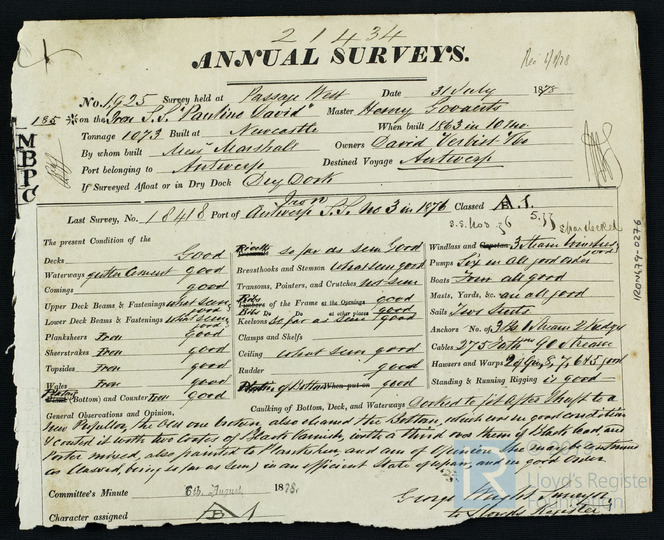 21434
ANNUAL SURVEYS.
Rec 6/8/78
No. 1925 Survey held at Passage West Date 31 July 1878
185 on the Iron S.S. "Pauline David" Master Henry Govaerts
Tonnage 1073 Built at Newcastle When built 1863 in 10 mo.
By whom built Messrs Marshall Owners David Verbist & Co
Port belonging to Antwerp Destined Voyage Antwerp
If Surveyed Afloat or in Dry Dock Dry Dock
MBPC
Last Survey, No. 18418 Port of Antwerp S.S. No 3 in 1876 Classed A.1.
Iron
S.S. No 3 76 5.77
spardecked
The present Condition of the
Decks Good
Waterways gutter Cement good
Comings good
Upper Deck Beams & Fastenings what seen good
Lower Deck Beams & Fastenings what seen good
Planksheers Iron good
Sheerstrakes Iron good
Topsides Iron good
Wales Iron good
Plating (Bottom) and Counter Iron good
Rivets so far as seen Good
Breasthooks and Stemson what seen good
Transoms, Pointers, and Crutches not seen
Timbers of the Frame at the Openings good
Do Do at other places good
Keelsons so far as seen good
Clamps and Shelfs
Ceiling what seen good
Rudder good
of Bottom When put on good
Windlass and Capstan 3 Steam winches good
Pumps Six in all good order
Boats Four all good
Masts, Yards, &c. are all good
Sails Two Suits
Anchors No. of 3 Br 1 Stream 2 Kedges
Cables 275 Faths 90 Stream
Hawsers and Warps good
Standing & Running Rigging is good
General Observations and Opinion, Caulking of Bottom, Deck, and Waterways Docked to fit After Shaft & a
New Propellor, the Old one broken, also cleaned the Bottom, which is in good condition
& coated it with two coats of Black varnish, with a third one them of Black lead, and
Porter mixed, also painted to Planksheer and am of Opinion She may be continued
as Classed, being (so far as seen) in an efficient State of repair, and in good Order
Committee's Minute 6th August 1878.
Character assigned A 1
George Surveyor
to Lloyds Register
IRON479-0276
© 2019
Lloyd's Register
Foundation